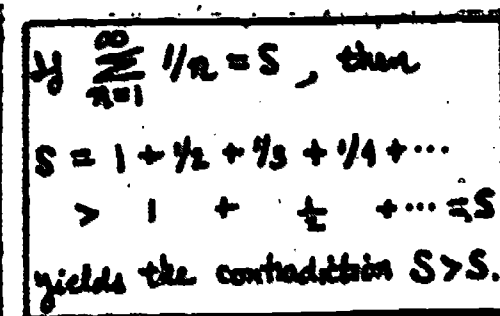 If ∞∑n=1 1/n = S, then
S = 1 + 1/2 + 1/3 + 1/4 + ···
> 1 + 1/2 + ··· = S
yields the contradiction S > S.